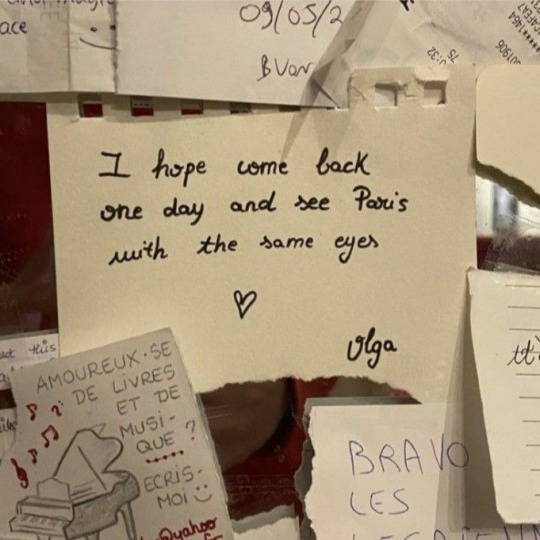 ace
09/05/2
I hope come back
one day and see Paris
with the same eyes
♡
Olga
this
AMOUREUX·SE
DE LIVRES
ET DE
MUSI-
QUE ?
ECRIS-
MOI
@yahoo
BRAVO
LES